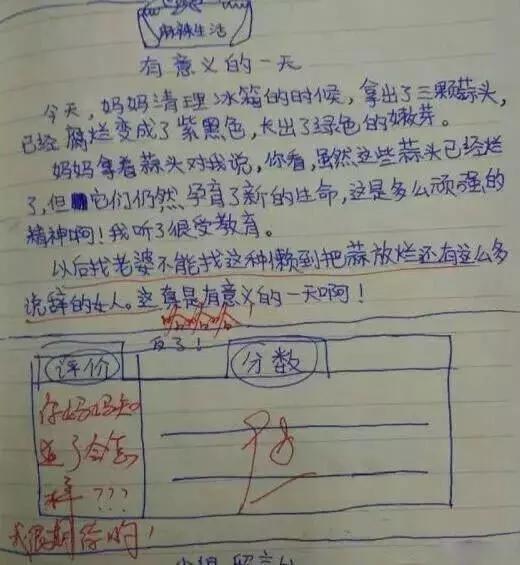 麻辣生活
有意义的一天
今天,妈妈清理冰箱的时候,拿出了三颗蒜头,
已经腐烂变成了紫黑色,长出了绿色的嫩芽。
妈妈拿着蒜头对我说,你看,虽然这些蒜头已经烂
了,但它们仍然孕育了新的生命,这是多么顽强的
精神啊!我听了很受教育。
以后找老婆不能找这种懒到把蒜放烂还有这么多
说辞的女人。这真是有意义的一天啊!
哈哈哈
评价
分数
你妈妈知
道了会怎
样???
我很期待哟!
优